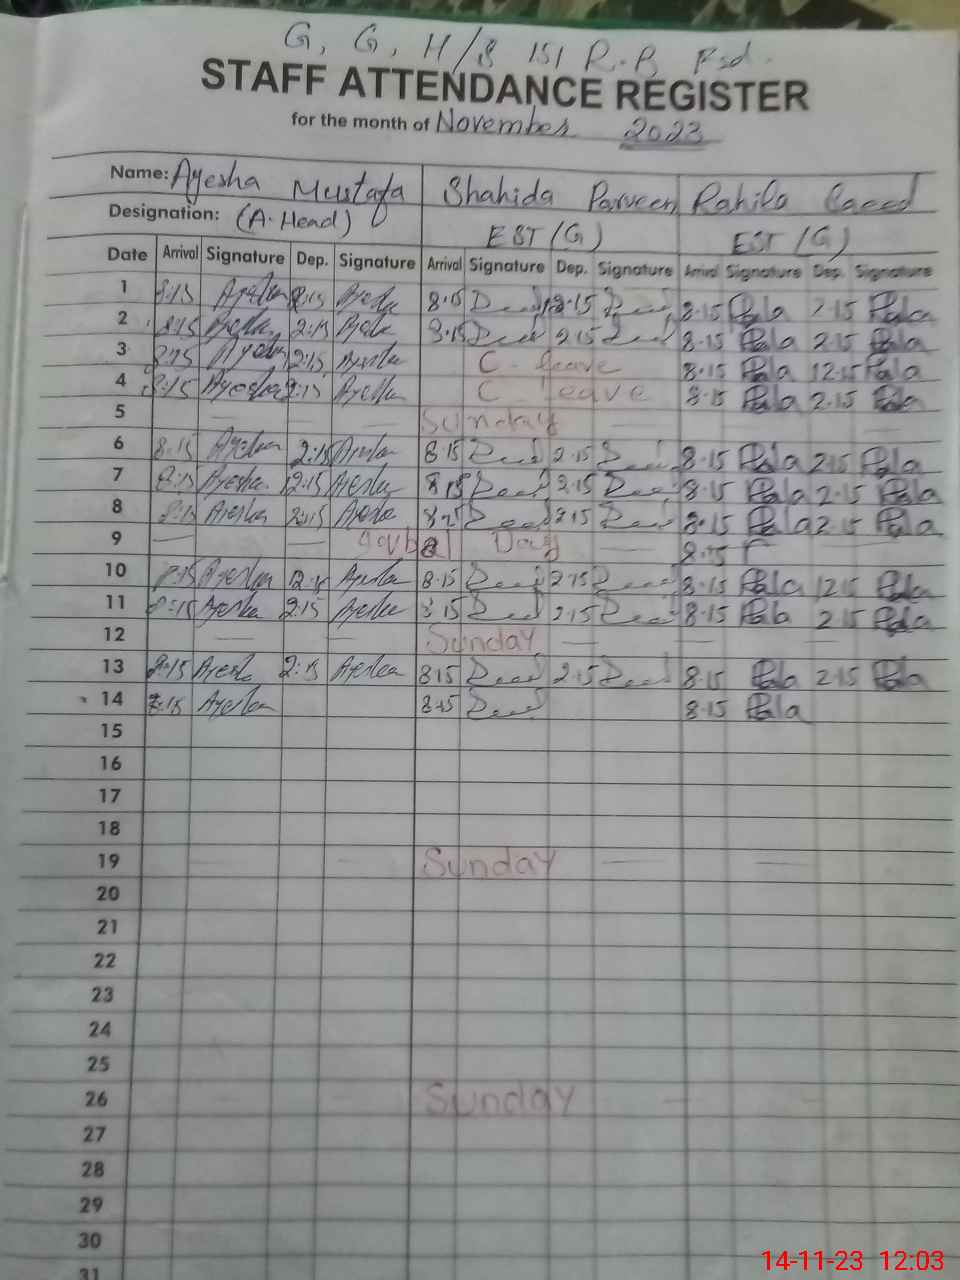 G, G, H/S 151 R.B Fsd.
STAFF ATTENDANCE REGISTER
for the month of November 2023
Name: Ayesha Mustafa Shahida Parveen Rahila Saeed
Designation: (A. Head) EST (G) EST (G)
Date Arrival Signature Dep. Signature Arrival Signature Dep. Signature Arrival Signature Dep. Signature
1 8:15 Ayesha 2:15 Ayesha 8.15 2.15 8.15 2.15
2 8:15 Ayesha 2:15 Ayesha 8.15 2.15 8.15 2.15
3 8:15 Ayesha 12:15 Ayesha C. leave 8.15 12.15
4 8:15 Ayesha 2:15 Ayesha C. leave 8.15 2.15
5 Sunday
6 8:15 Ayesha 2:15 Ayesha 8.15 2.15 8.15 2.15
7 8:15 Ayesha 2:15 Ayesha 8.15 2.15 8.15 2.15
8 8:15 Ayesha 2:15 Ayesha 2.15 8.15 2.15
9 Day 8.15
10 8:15 Ayesha 12:15 Ayesha 8.15 8.15 12.15
11 8:15 Ayesha 2:15 Ayesha 8.15 2.15 8.15 2.15
12 Sunday
13 8:15 Ayesha 2:15 Ayesha 8.15 2.15 8.15 2.15
14 8:15 Ayesha 8.15 8.15
15
16
17
18
19 Sunday
20
21
22
23
24
25
26 Sunday
27
28
29
30
31
14-11-23 12:03